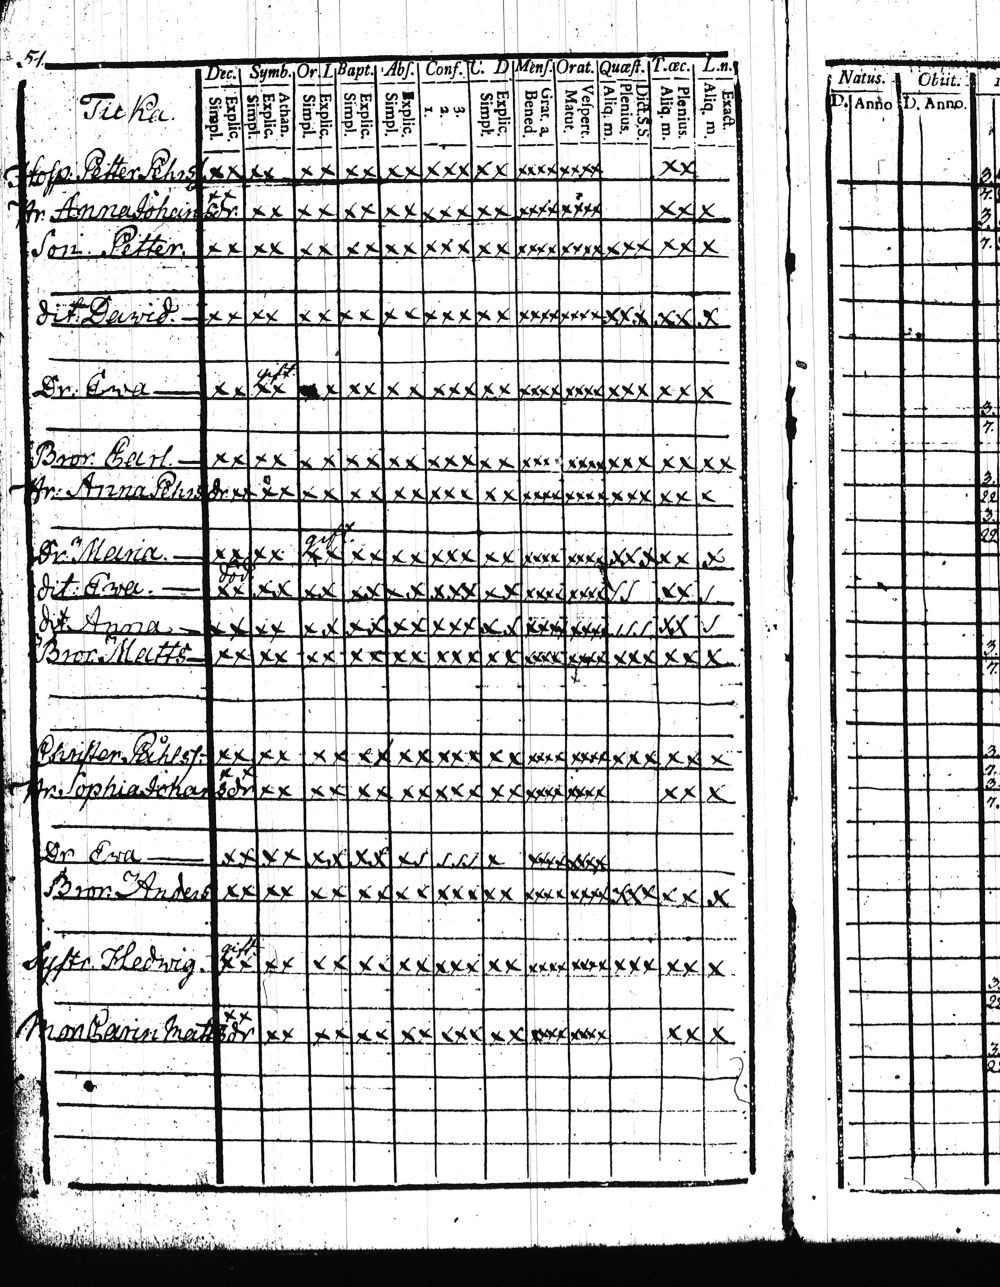 51.
Dec. Symb. Or. I. Bapt. Abs. Conf. C. D Mens. Orat. Quæst. T.œc. L.n.
Simpl. Explic. Simpl. Explic. Athan. Simpl. Explic. Simpl. Explic. Simpl. Explic. 1. 2. 3. Simpl. Explic. Bened. Grat. a Matut. Vespert. Aliq. m. Plenius. Dict. S.S. Aliq. m. Plenius. Aliq. m. Exact.
Ticka.
Hosp. Petter Pehrss xx xx xx xx xx xxx xx xxxx xxxx xx
Hr. Anna Johans dr. xx xx xx xx xx xxx xx xxxx xxxx xxx x
Son. Petter. xx xx xx xx xx xxx xx xxxx xxxx xxx xxx x
dit: David. xx xx xx xx xx xxx xx xxxx xxxx xxx xx x
gift
Dr. Ewa xx xx x xx xx xxx xx xxxx xxxx xxx xx x
Bror. Carl. xx xx xx xx xx xxx xx xxxx xxxx xxx xx xx
Hr: Anna Pehrs dr xx xx xx xx xx xxx xx xxxx xxxx xxx xx x
gift.
Dr. Maria. xx xx xx xx xx xxx xx xxxx xxxx xxx xx x
död
dit: Ewa. xx xx xx xx xx xxx xx xxxx xxxx xx
dit Anna xx xx xx xx xx xxx xx xxxx xxxx xx
Bror. Matts xx xx xx xx xx xxx xx xxxx xxxx xxx xx x
Christer Påhlss. xx xx xx xx xx xxx xx xxxx xxxx xxx xx x
Hr. Sophia Johans dr xx xx xx xx xxx xx xxxx xxxx xx x
Dr Ewa xx xx xx xx x x xxxx xxxx
Bror. Anders xx xx xx xx xx xxx xx xxxx xxxx xxx xx x
gift.
Systr. Hedwig. xx xx xx xx xx xxx xx xxxx xxxx xxx xx x
xx
Mor Carin Matts dr xx xx xx xx xxx xx xxxx xxxx xx x
Natus. Obiit.
D. Anno D. Anno.